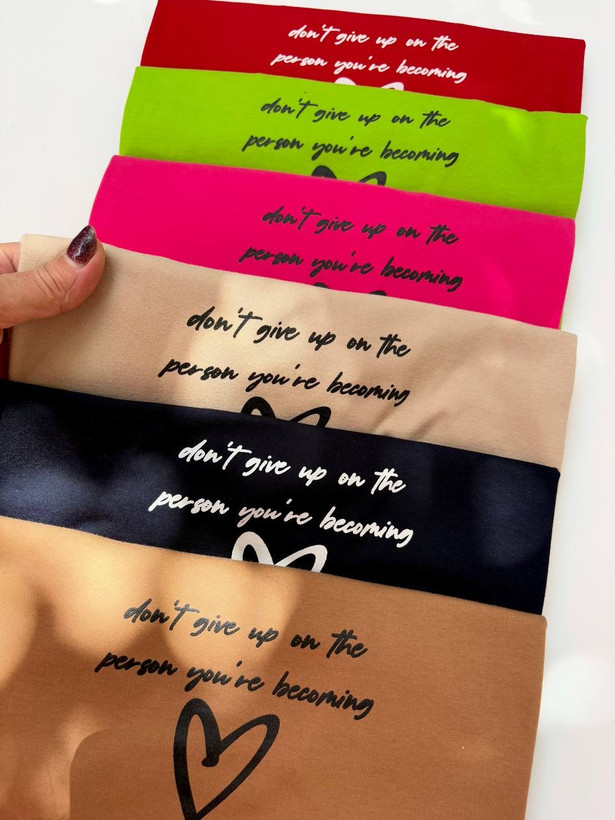 don't give up on the
person you're becoming
don't give up on the
person you're becoming
don't give up on the
person you're becoming
don't give up on the
person you're becoming
don't give up on the
person you're becoming
don't give up on the
person you're becoming